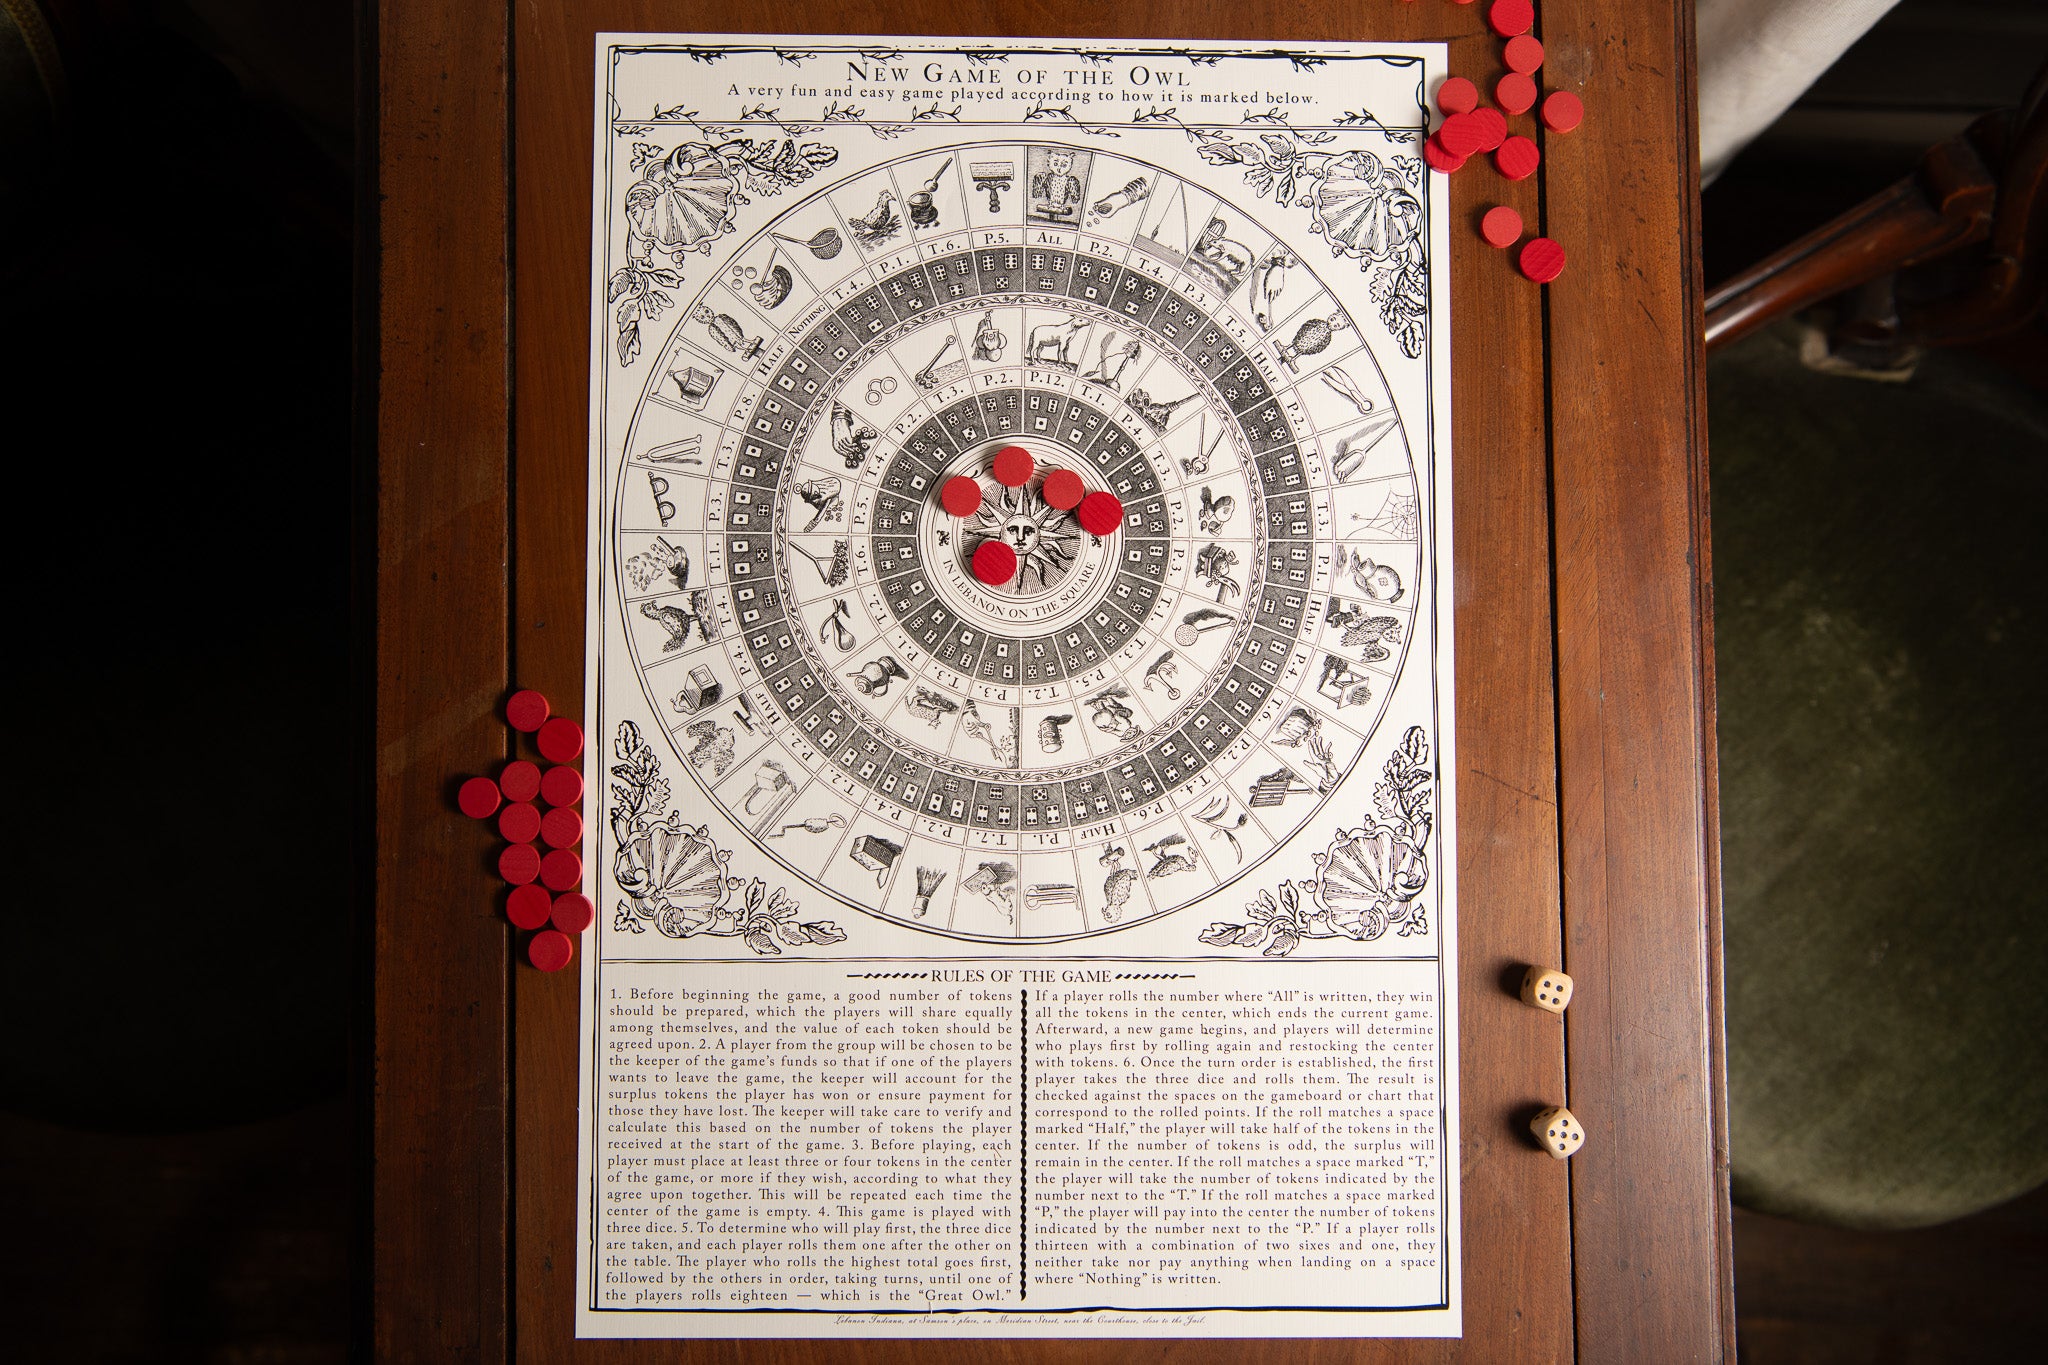 NEW GAME OF THE OWL
A very fun and easy game played according to how it is marked below.
ALL
P.2.
T.4.
P.3.
T.5.
HALF
P.2.
T.5
T.3.
P.1.
HALF
P.4
T.6.
P.2.
T.4.
P.6.
HALF
P.1.
T.7.
P.2.
P.4.
T.2.
P.2.
HALF
P.4.
T.4.
T.1.
P.3.
T.3.
P.8.
HALF
NOTHING
T.4.
P.1.
T.6.
P.5.
P.12.
T.1.
P.4.
T.3.
P.2.
P.3
T.1.
T.3.
P.5.
T.2.
P.3.
T.3
P.1.
T.2.
T.6.
P.5.
T.4.
P.2.
T.3.
P.2.
IN LEBANON ON THE SQUARE
RULES OF THE GAME
1. Before beginning the game, a good number of tokens
should be prepared, which the players will share equally
among themselves, and the value of each token should be
agreed upon. 2. A player from the group will be chosen to be
the keeper of the game's funds so that if one of the players
wants to leave the game, the keeper will account for the
surplus tokens the player has won or ensure payment for
those they have lost. The keeper will take care to verify and
calculate this based on the number of tokens the player
received at the start of the game. 3. Before playing, each
player must place at least three or four tokens in the center
of the game, or more if they wish, according to what they
agree upon together. This will be repeated each time the
center of the game is empty. 4. This game is played with
three dice. 5. To determine who will play first, the three dice
are taken, and each player rolls them one after the other on
the table. The player who rolls the highest total goes first,
followed by the others in order, taking turns, until one of
the players rolls eighteen — which is the “Great Owl.”
If a player rolls the number where “All” is written, they win
all the tokens in the center, which ends the current game.
Afterward, a new game begins, and players will determine
who plays first by rolling again and restocking the center
with tokens. 6. Once the turn order is established, the first
player takes the three dice and rolls them. The result is
checked against the spaces on the gameboard or chart that
correspond to the rolled points. If the roll matches a space
marked “Half,” the player will take half of the tokens in the
center. If the number of tokens is odd, the surplus will
remain in the center. If the roll matches a space marked “T,”
the player will take the number of tokens indicated by the
number next to the “T.” If the roll matches a space marked
“P,” the player will pay into the center the number of tokens
indicated by the number next to the “P.” If a player rolls
thirteen with a combination of two sixes and one, they
neither take nor pay anything when landing on a space
where “Nothing” is written.
Lebanon Indiana, at Samson's place, on Meridian Street, near the Courthouse, close to the Jail.